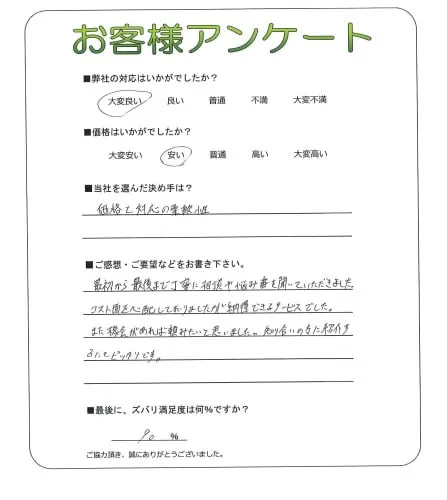 お客様アンケート
■弊社の対応はいかがでしたか？
大変良い 良い 普通 不満 大変不満
■価格はいかがでしたか？
大変安い 安い 普通 高い 大変高い
■当社を選んだ決め手は？
価格と対応の柔軟性
■ご感想・ご要望などをお書き下さい。
最初から最後まで丁寧に相談や悩み事を聞いていただきました
コスト面を心配しておりましたが納得できるサービスでした。
また機会があれば頼みたいと思いました。知り合いの方に紹介す
るにもピッタリです。
■最後に、ズバリ満足度は何％ですか？
90 ％
ご協力頂き、誠にありがとうございました。